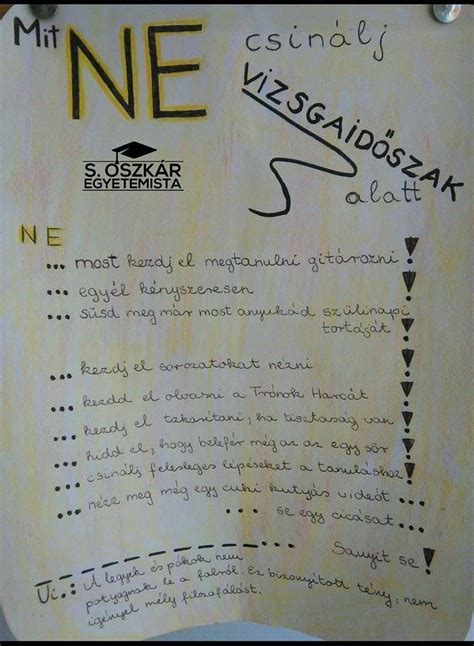 Mit NE csinálj
VIZSGAIDŐSZAK
alatt
S. OSZKÁR
EGYETEMISTA
NE
... most kezdj el megtanulni gitározni!
... egyél kényszeresen!
... süsd meg már most anyukád szülinapi
tortáját!
... kezdj el sorozatokat nézni!
... kezdd el olvasni a Trónok Harcát!
... kezdj el takarítani, ha tisztaság van!
... hidd el, hogy belefér még az az egy sör!
... csinálj felesleges lépéseket a tanuláshoz!
... nézz meg még egy cuki kutyás videót ...
... se egy cicásat ...
Sanyit se!
Ui.: A legyek és pókok nem
potyognak le a falról. Ez bizonyított tény, nem
igényel mély filozofálást.